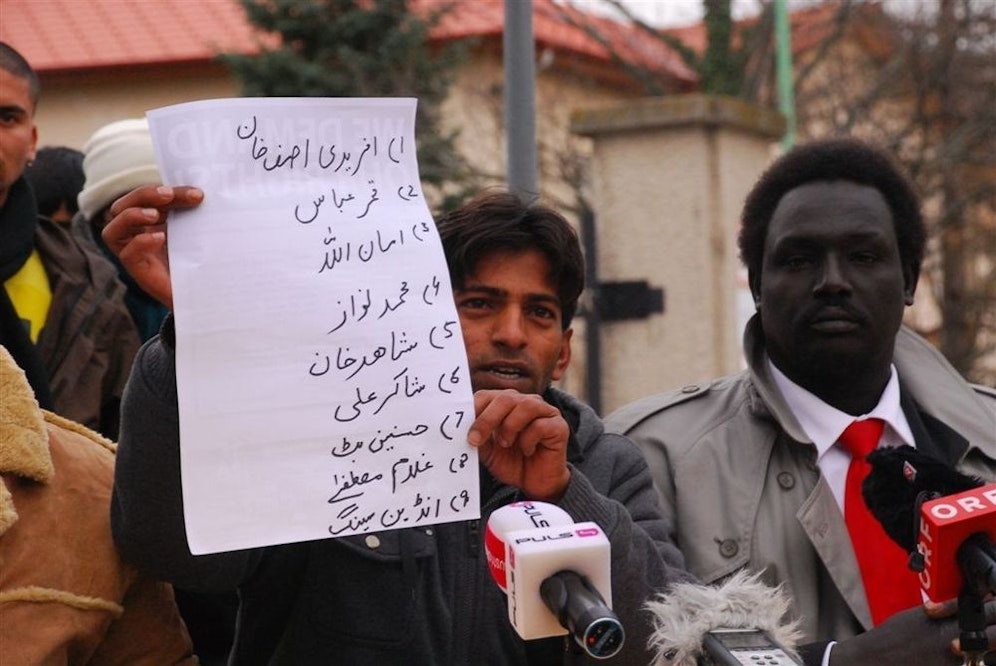 1) افریدی اصف خان
2) قمر عباس
3) امان اللہ
4) محمد نواز
5) شاھد خان
6) شاکر علی
7) حسنین بٹ
8) غلام مصطفےٰ
9) انڈین سینگ
WE DEMAND
PULS 4
PULS
ORF
ORF